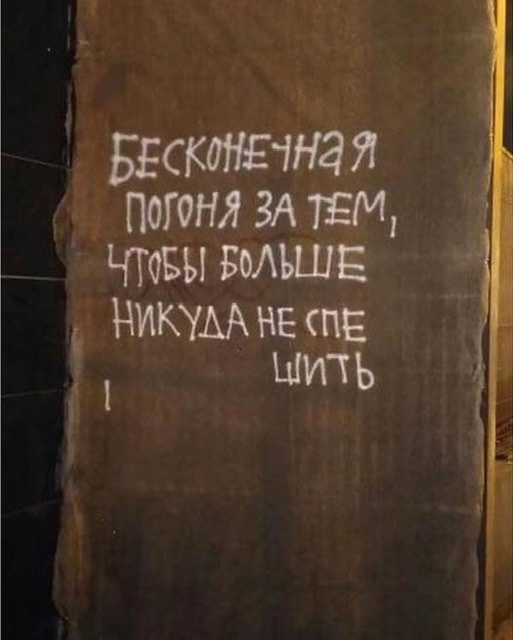 БЕСКОНЕЧНаЯ
ПОГОНЯ ЗА ТЕМ,
ЧТОБЫ БОЛЬШЕ
НИКУДА НЕ СПЕ
ШИТЬ